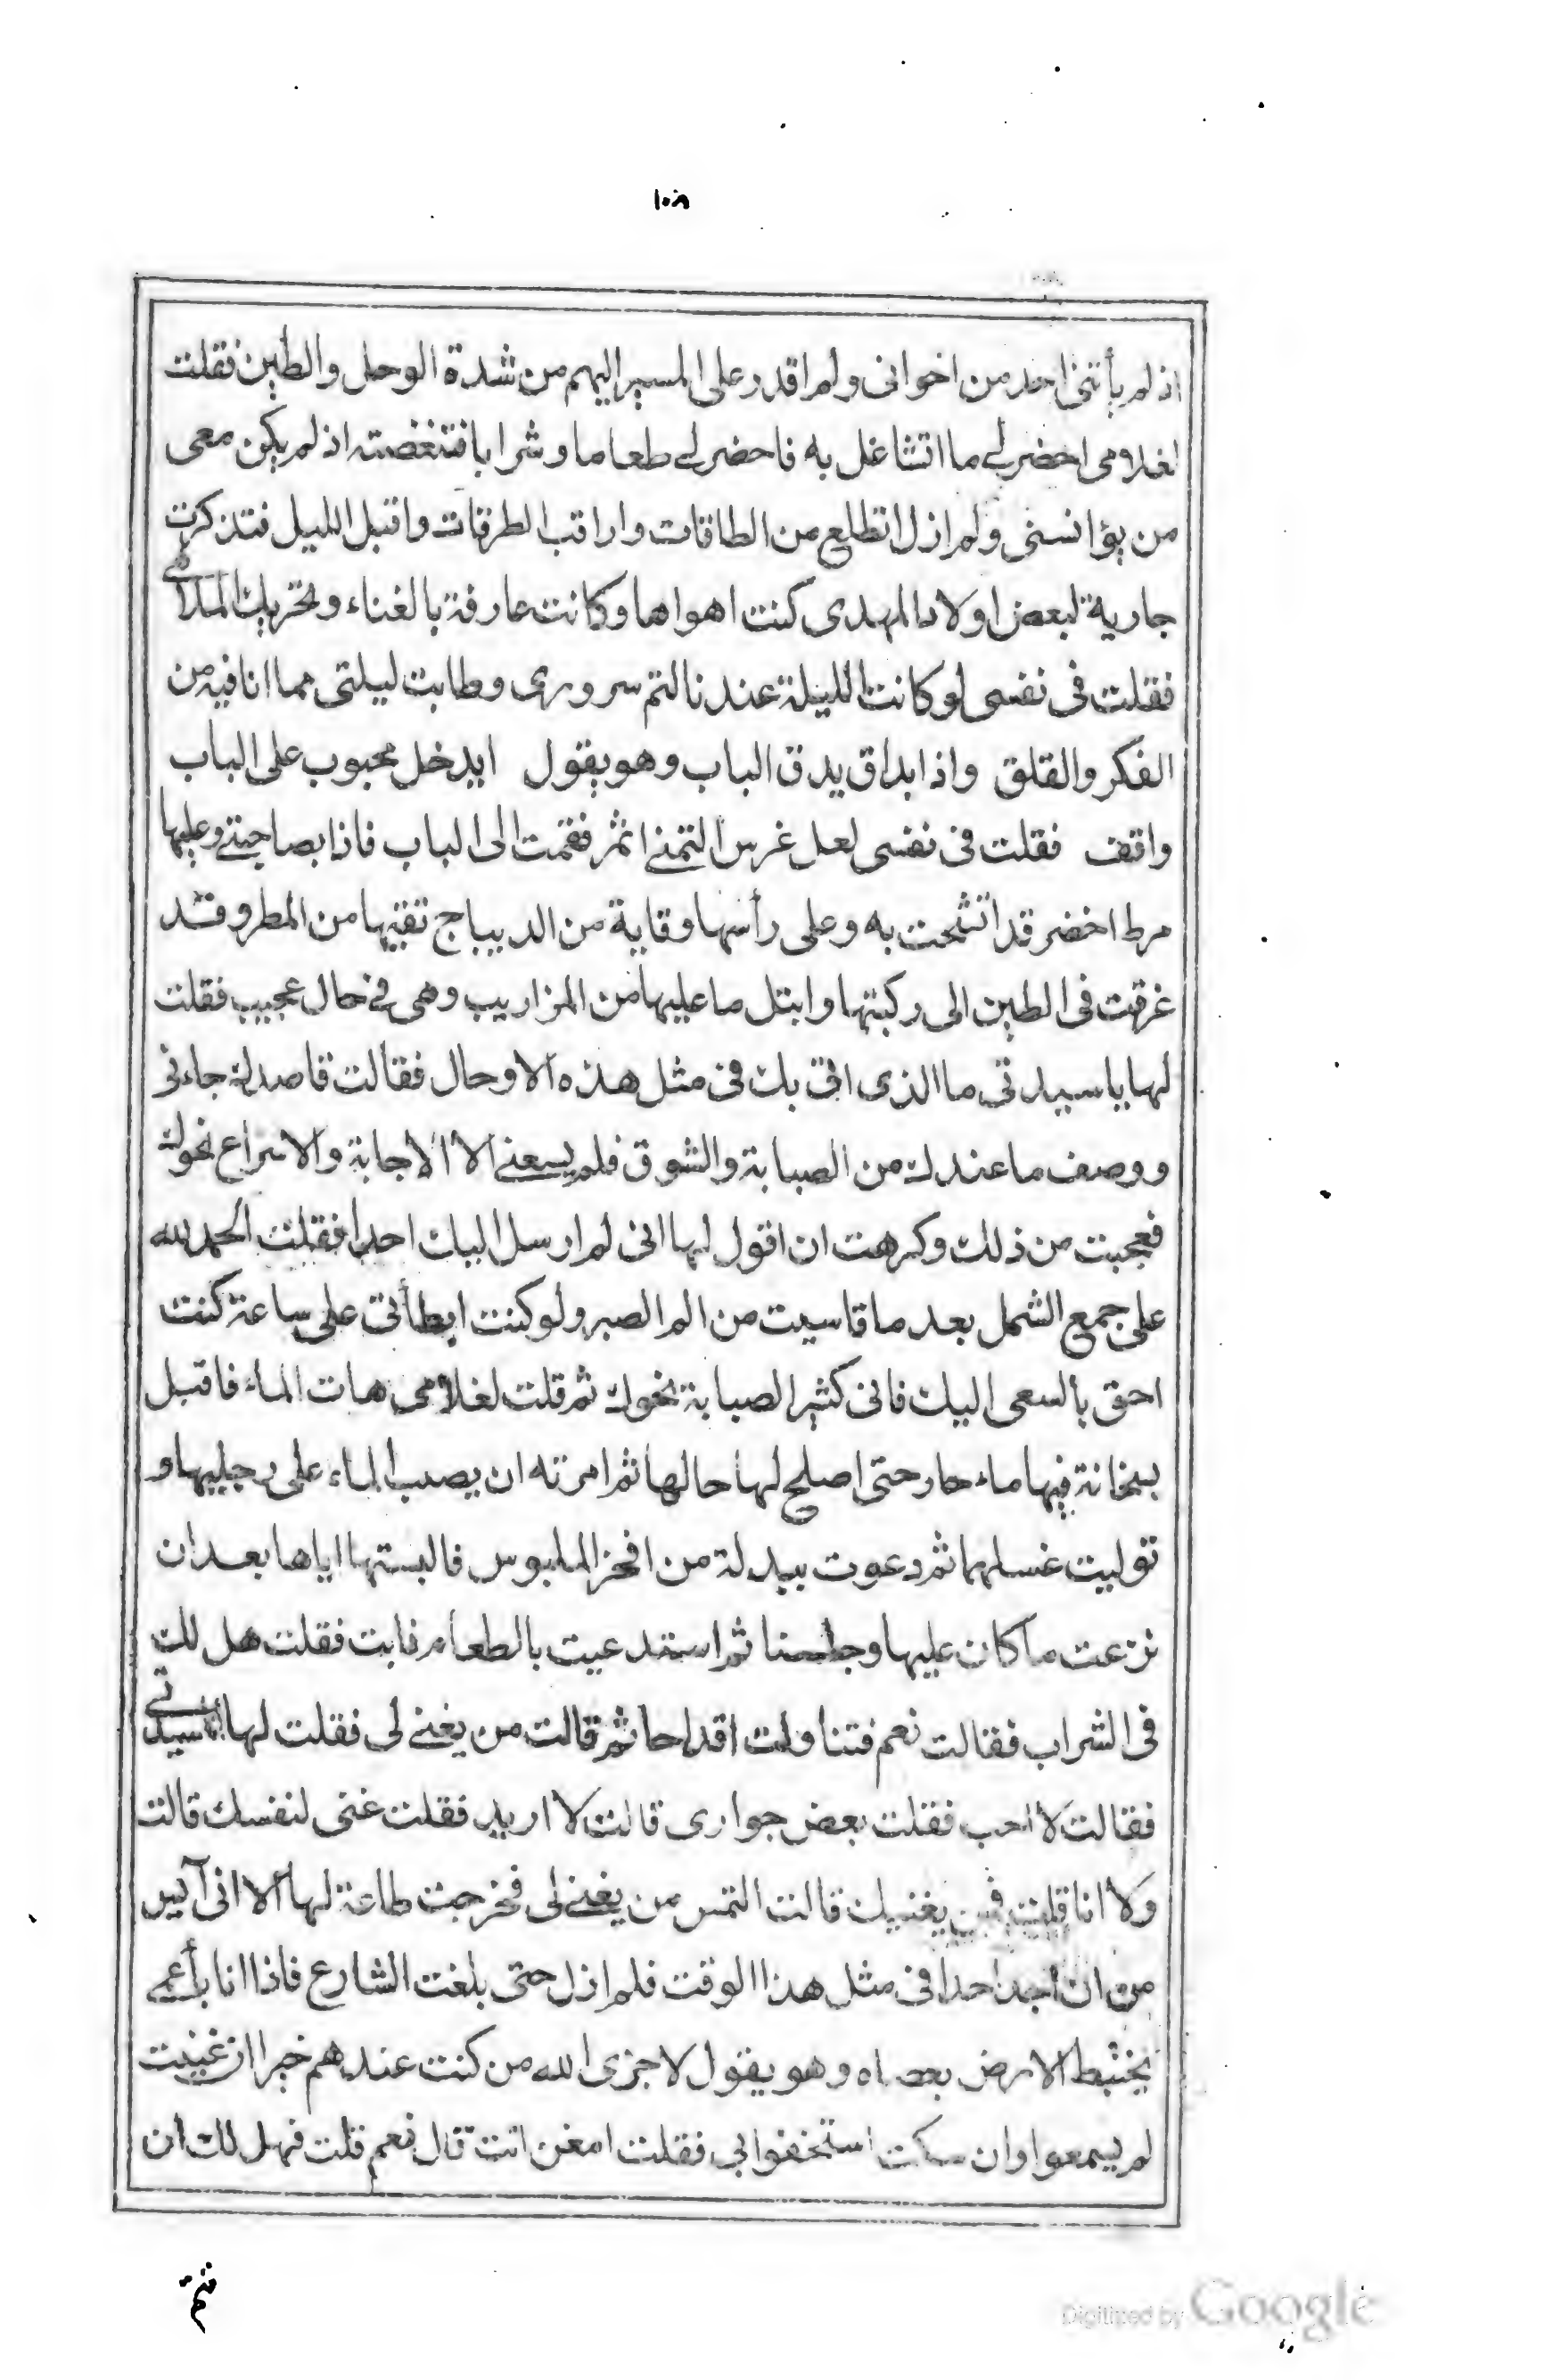 ١٠٨
اذ لم يأتنى احد من اخوانى ولم اقدر على المسير اليهم من شدة الوحل والطين فقلت
لغلامى احضر لى ما اتشاغل به فاحضر لى طعاما وشرابا فتنغصت اذ لم يكن معى
من يؤانسنى ولم ازل اتطلع من الطاقات واراقب الطرقات واقبل الليل فتذكرت
جارية لبعض اولاد المهدى كنت اهواها وكانت عارفة بالغناء وتحريك الملاهى
فقلت فى نفسى لو كانت الليلة عندنا لتم سرورى وطابت ليلتى مما انا فيه من
الفكر والقلق واذا بداق يدق الباب وهو يقول ايدخل محبوب على الباب
واقف فقلت فى نفسى لعل غرس التمنى اثمر فقمت الى الباب فاذا بصاحبتى وعليها
مرط اخضر قد اتشحت به وعلى رأسها وقاية من الديباج تقيها من المطر وقد
غرقت فى الطين الى ركبتها وابتل ما عليها من المزاريب وهى فى حال عجيب فقلت
لها يا سيدتى ما الذى اتى بك فى مثل هذه الاوحال فقالت قاصدك جاءنى
ووصف ما عندك من الصبابة والشوق فلم يسعنى الا الاجابة والاسراع نحوك
فعجبت من ذلك وكرهت ان اقول لها انى لم ارسل اليك احدا فقلت الحمد لله
على جمع الشمل بعد ما قاسيت من الم الصبر ولو كنت ابطأتى على ساعة كنت
احق بالسعى اليك فانى كثير الصبابة نحوك ثم قلت لغلامى هات الماء فاقبل
بسخانة فيها ماء حار حتى اصلح لها حالها ثم امرته ان يصب الماء على رجليها و
توليت غسلهما ثم دعوت ببدلة من افخر الملبوس فالبستها اياها بعد ان
نزعت ما كان عليها وجلسنا ثم استدعيت بالطعام فابت فقلت هل لك
فى الشراب فقالت نعم فتناولت اقداحا ثم قالت من يغنى لى فقلت لها انا سيدتى
فقالت لا احب فقلت بعض جوارى قالت لا اريد فقلت غنى لنفسك قالت
ولا انا قلت فمن يغنيك قالت التمس من يغنى لى فخرجت طاعة لها الا انى آيس
من ان اجد احدا فى مثل هذا الوقت فلم ازل حتى بلغت الشارع فاذا انا بأعمى
يخبط الارض بعصاه وهو يقول لا جزى الله من كنت عندهم خيرا ان غنيت
لم يسمعوا وان سكت استخفوا بى فقلت امغن انت قال نعم قلت فهل لك ان
تتم
Digitized by Google